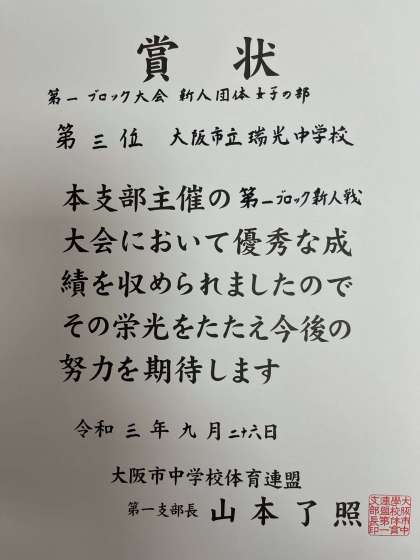 賞状
第一ブロック大会 新人団体女子の部
第三位 大阪市立瑞光中学校
本支部主催の第一ブロック新人戦
大会において優秀な成
績を収められましたので
その栄光をたたえ今後の
努力を期待します
令和三年九月二十六日
大阪市中学校体育連盟
第一支部長 山本了照
大阪市中
學校体育
連盟第一
支部長印